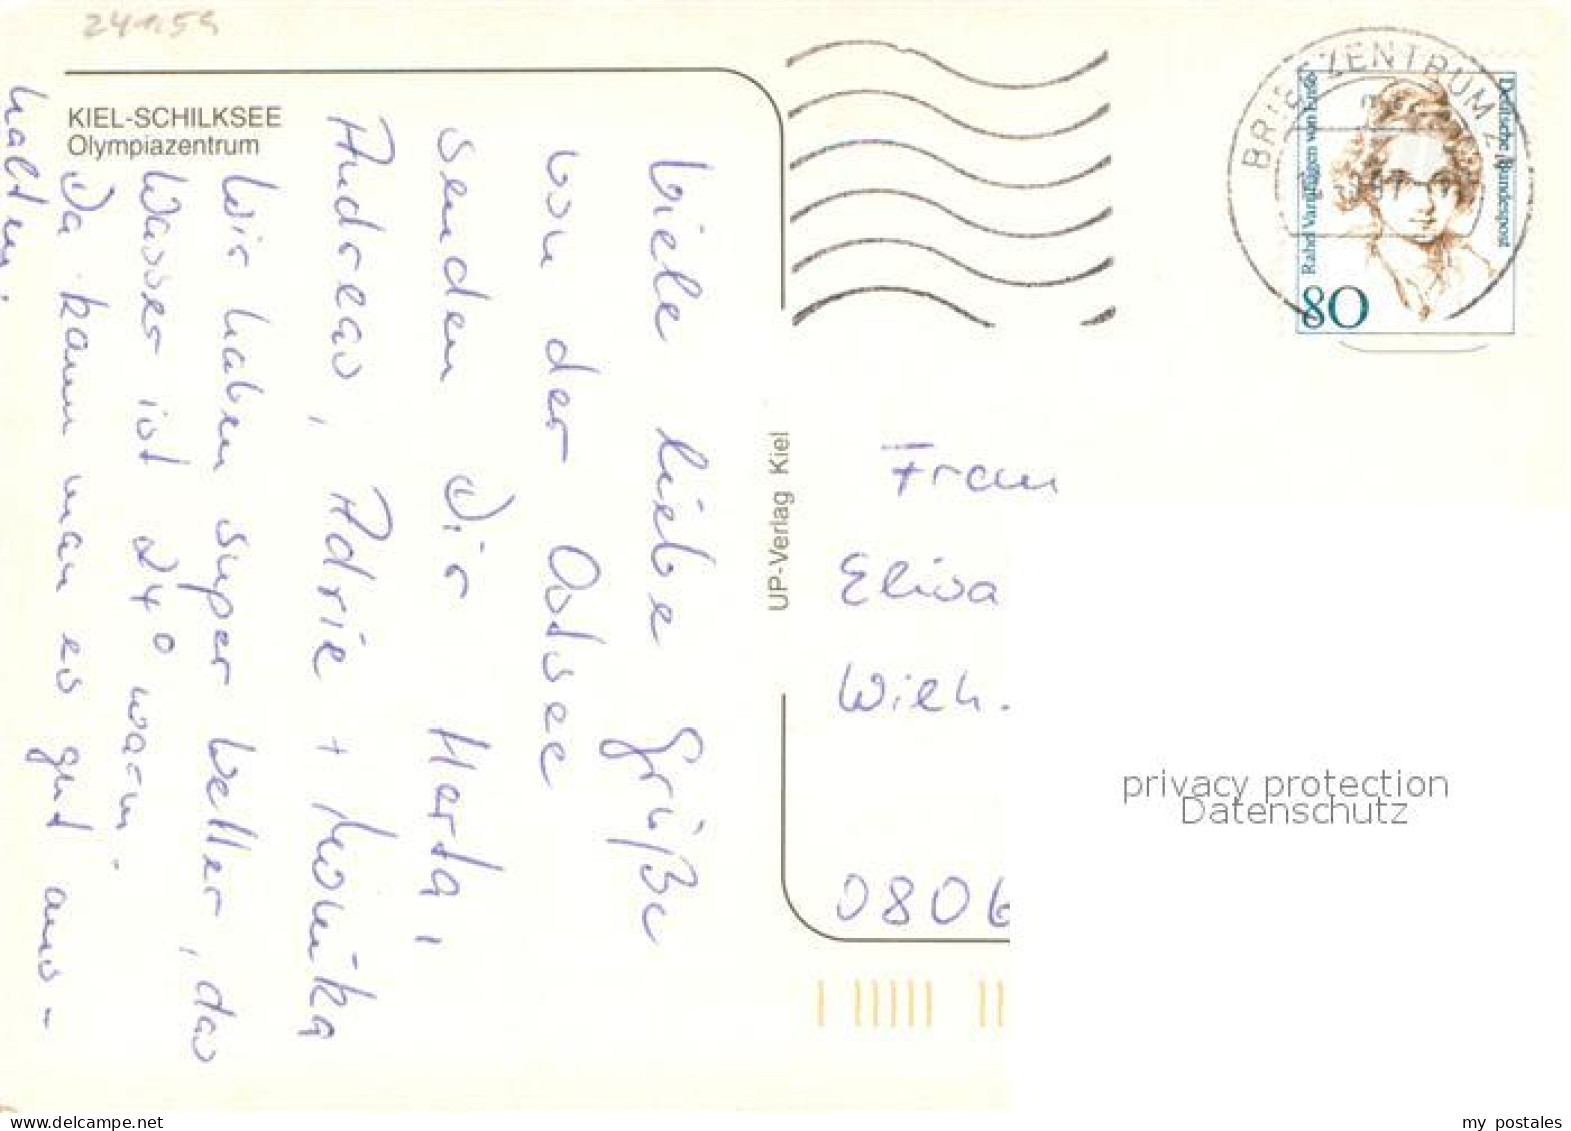 24159
KIEL-SCHILKSEE
Olympiazentrum
Viele liebe Grüße
von der Ostsee
senden Dir Herta,
Andreas, Adrie + Monika
Wir haben super Wetter, das
Wasser ist 24° warm.
Da kann man es gut aus-
halten.
UP-Verlag Kiel
BRIEFZENTRUM 2
Deutsche Bundespost
Rahel Varnhagen von Ense
80
Frau
Elisa
Wilh.
0806
privacy protection
Datenschutz
www.delcampe.net
my_postales